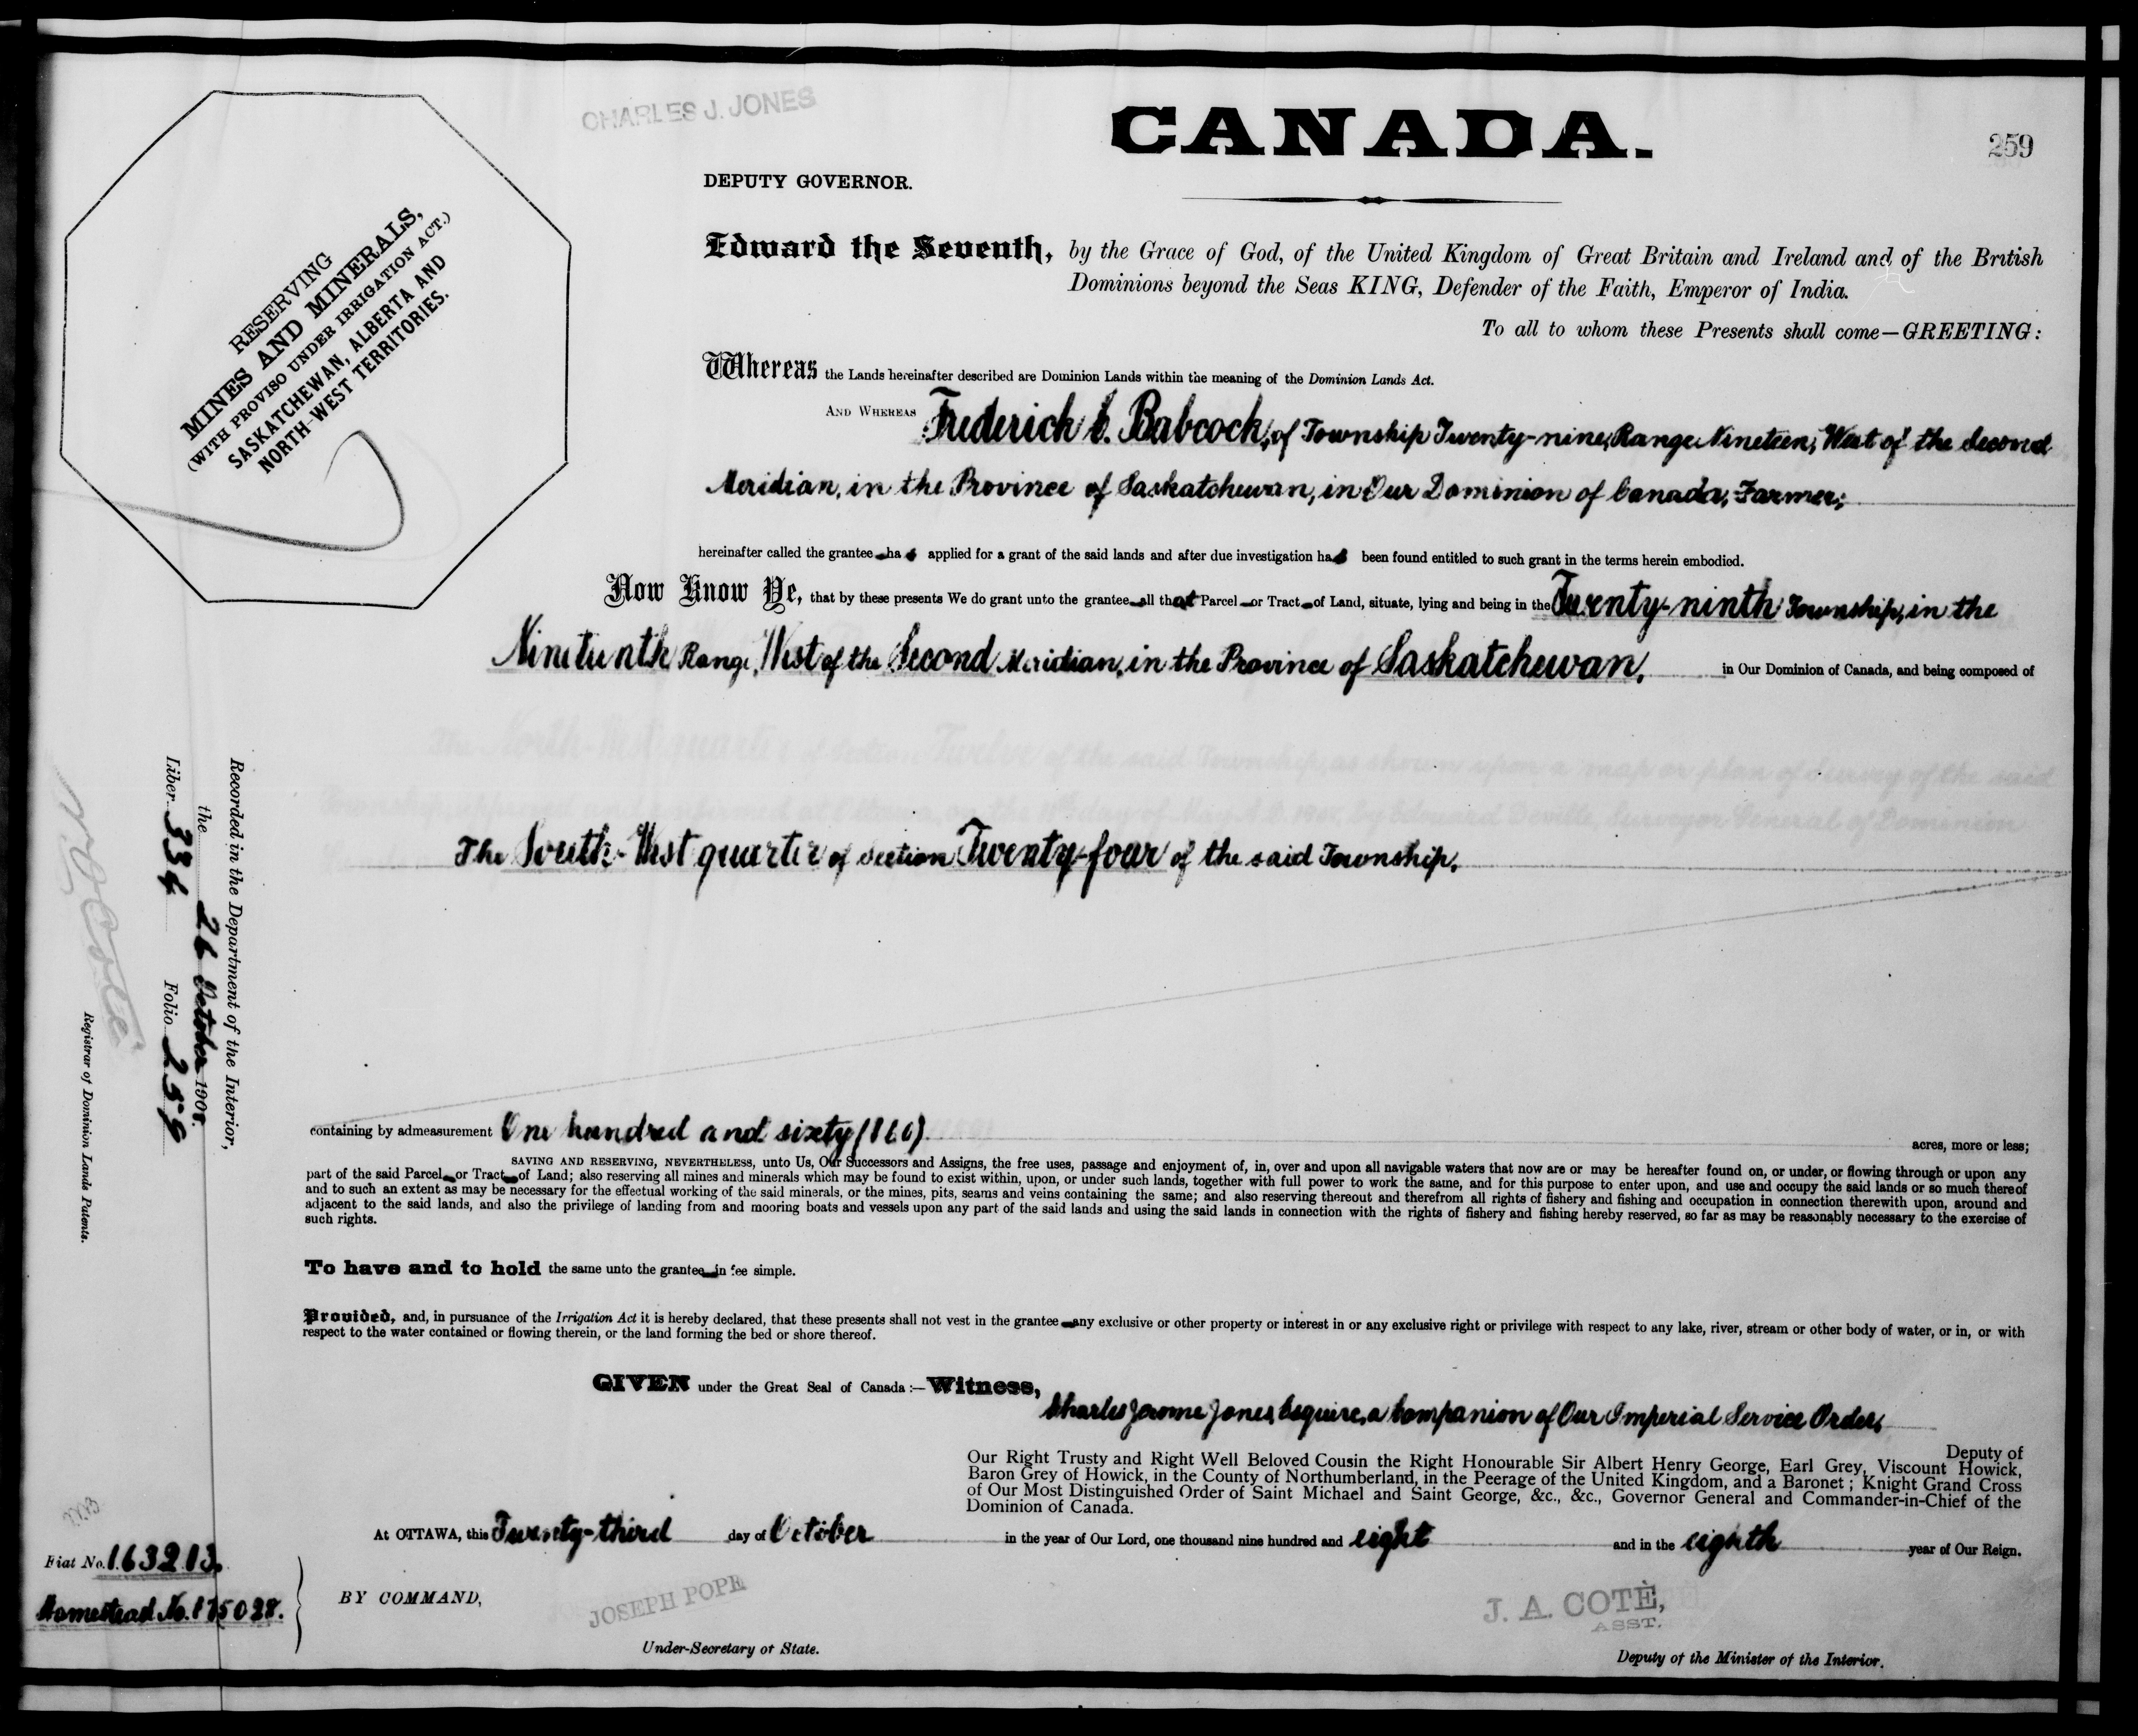 CHARLES J. JONES
CANADA.
259
DEPUTY GOVERNOR.
RESERVING
MINES AND MINERALS,
(WITH PROVISO UNDER IRRIGATION ACT.)
SASKATCHEWAN, ALBERTA AND
NORTH-WEST TERRITORIES.
Edward the Seventh, by the Grace of God, of the United Kingdom of Great Britain and Ireland and of the British
Dominions beyond the Seas KING, Defender of the Faith, Emperor of India.
To all to whom these Presents shall come—GREETING:
Whereas the Lands hereinafter described are Dominion Lands within the meaning of the Dominion Lands Act.
AND WHEREAS Frederick C. Babcock, of Township Twenty-nine, Range Nineteen, West of the Second
Meridian, in the Province of Saskatchewan, in Our Dominion of Canada, Farmer;
hereinafter called the grantee has applied for a grant of the said lands and after due investigation has been found entitled to such grant in the terms herein embodied.
Now Know Ye, that by these presents We do grant unto the grantee all that Parcel or Tract of Land, situate, lying and being in the Twenty-ninth Township, in the
Nineteenth Range, West of the Second Meridian, in the Province of Saskatchewan, in Our Dominion of Canada, and being composed of
The South-West quarter of Section Twenty-four of the said Township.
containing by admeasurement One hundred and sixty (160) acres, more or less;
SAVING AND RESERVING, NEVERTHELESS, unto Us, Our Successors and Assigns, the free uses, passage and enjoyment of, in, over and upon all navigable waters that now are or may be hereafter found on, or under, or flowing through or upon any
part of the said Parcel or Tract of Land; also reserving all mines and minerals which may be found to exist within, upon, or under such lands, together with full power to work the same, and for this purpose to enter upon, and use and occupy the said lands or so much thereof
and to such an extent as may be necessary for the effectual working of the said minerals, or the mines, pits, seams and veins containing the same; and also reserving thereout and therefrom all rights of fishery and fishing and occupation in connection therewith upon, around and
adjacent to the said lands, and also the privilege of landing from and mooring boats and vessels upon any part of the said lands and using the said lands in connection with the rights of fishery and fishing hereby reserved, so far as may be reasonably necessary to the exercise of
such rights.
To have and to hold the same unto the grantee in fee simple.
Provided, and, in pursuance of the Irrigation Act it is hereby declared, that these presents shall not vest in the grantee any exclusive or other property or interest in or any exclusive right or privilege with respect to any lake, river, stream or other body of water, or in, or with
respect to the water contained or flowing therein, or the land forming the bed or shore thereof.
GIVEN under the Great Seal of Canada:—Witness,
Charles Jerome Jones, Esquire, a Companion of Our Imperial Service Order,
Deputy of
Our Right Trusty and Right Well Beloved Cousin the Right Honourable Sir Albert Henry George, Earl Grey, Viscount Howick,
Baron Grey of Howick, in the County of Northumberland, in the Peerage of the United Kingdom, and a Baronet; Knight Grand Cross
of Our Most Distinguished Order of Saint Michael and Saint George, &c., &c., Governor General and Commander-in-Chief of the
Dominion of Canada.
At OTTAWA, this Twenty-third day of October in the year of Our Lord, one thousand nine hundred and eight and in the eighth year of Our Reign.
BY COMMAND,
JOSEPH POPE
Under-Secretary of State.
J. A. COTÈ,
ASST.
Deputy of the Minister of the Interior.
Recorded in the Department of the Interior,
the 26 October 1908.
Liber 334 Folio 259
Registrar of Dominion Lands Patents.
Fiat No. 163213.
Homestead No. 175028.